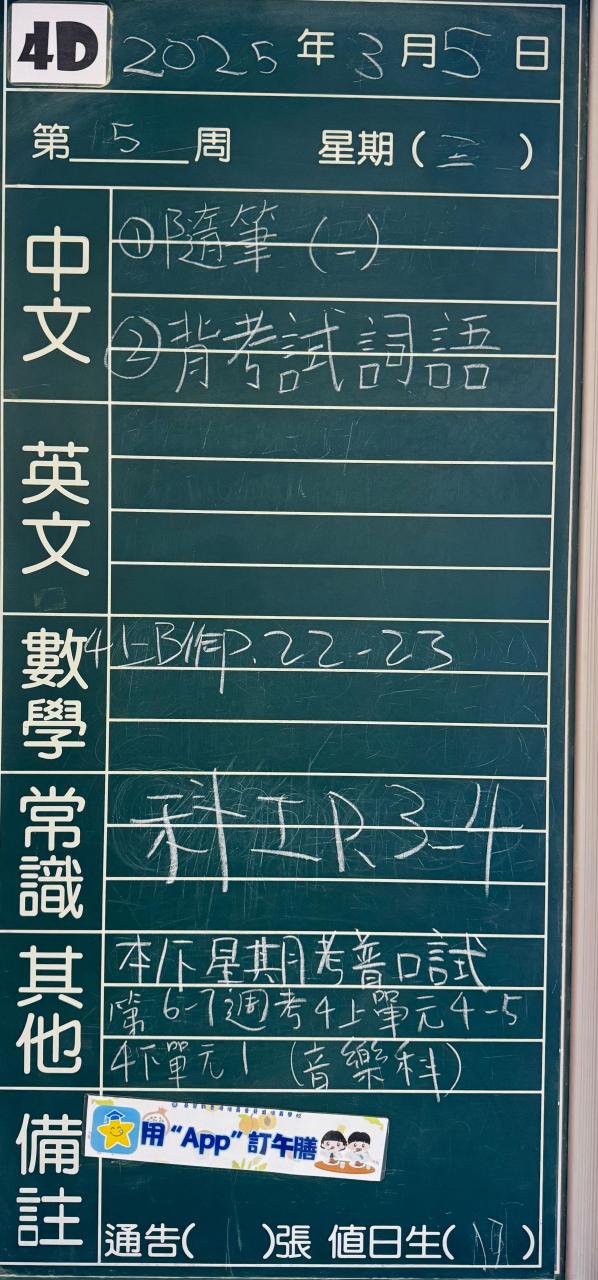 4D 2025年3月5日
第 5 周 星期(三)
中文
①隨筆(一)
②背考試詞語
英文
數學 4上B作P.22-23
常識 科工P.3-4
其他
本/下星期考普口試
第6-7週考4上單元4-5
4下單元1(音樂科)
備註
用“App”訂午膳
通告( 1 )張 值日生( )